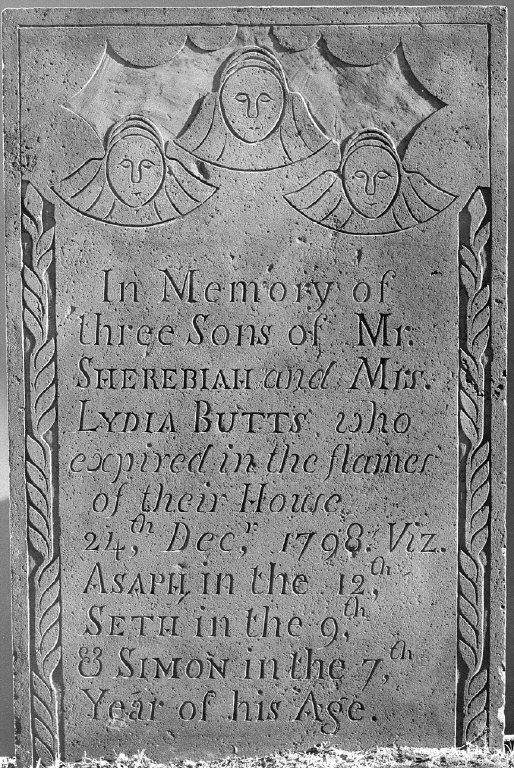 In Memory of
three Sons of Mr.
SHEREBIAH and Mrs.
LYDIA BUTTS, who
expired in the flames
of their House
24,th Dec,r 1798. Viz.
ASAPH, in the 12,th
SETH in the 9,th
& SIMON in the 7,th
Year of his Age.